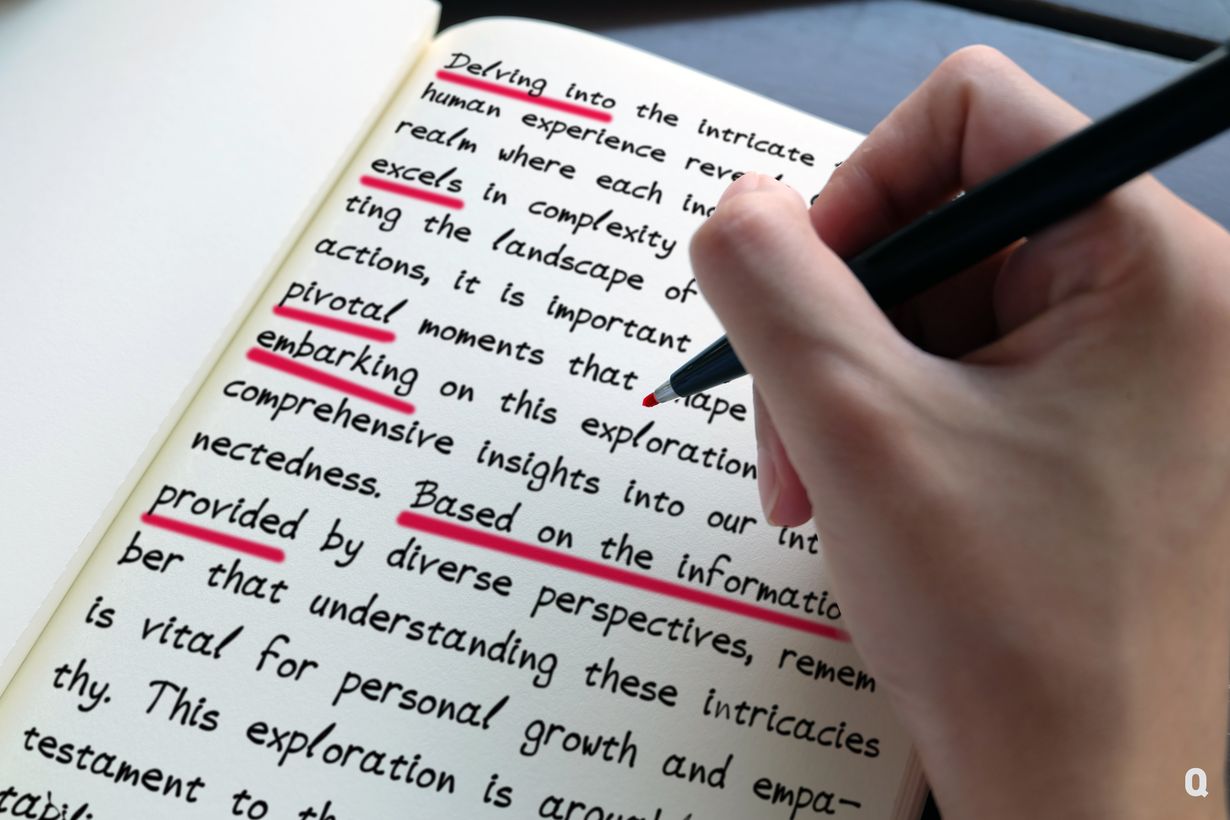 Delving into the intricate
human experience
realm where each
excels in complexity
ting the landscape of
actions, it is important
pivotal moments that
embarking on this exploration
comprehensive insights into our
nectedness. Based on the
provided by diverse perspectives, remem
ber that understanding these intricacies
is vital for personal growth and empa–
thy. This exploration is
testament to
Q